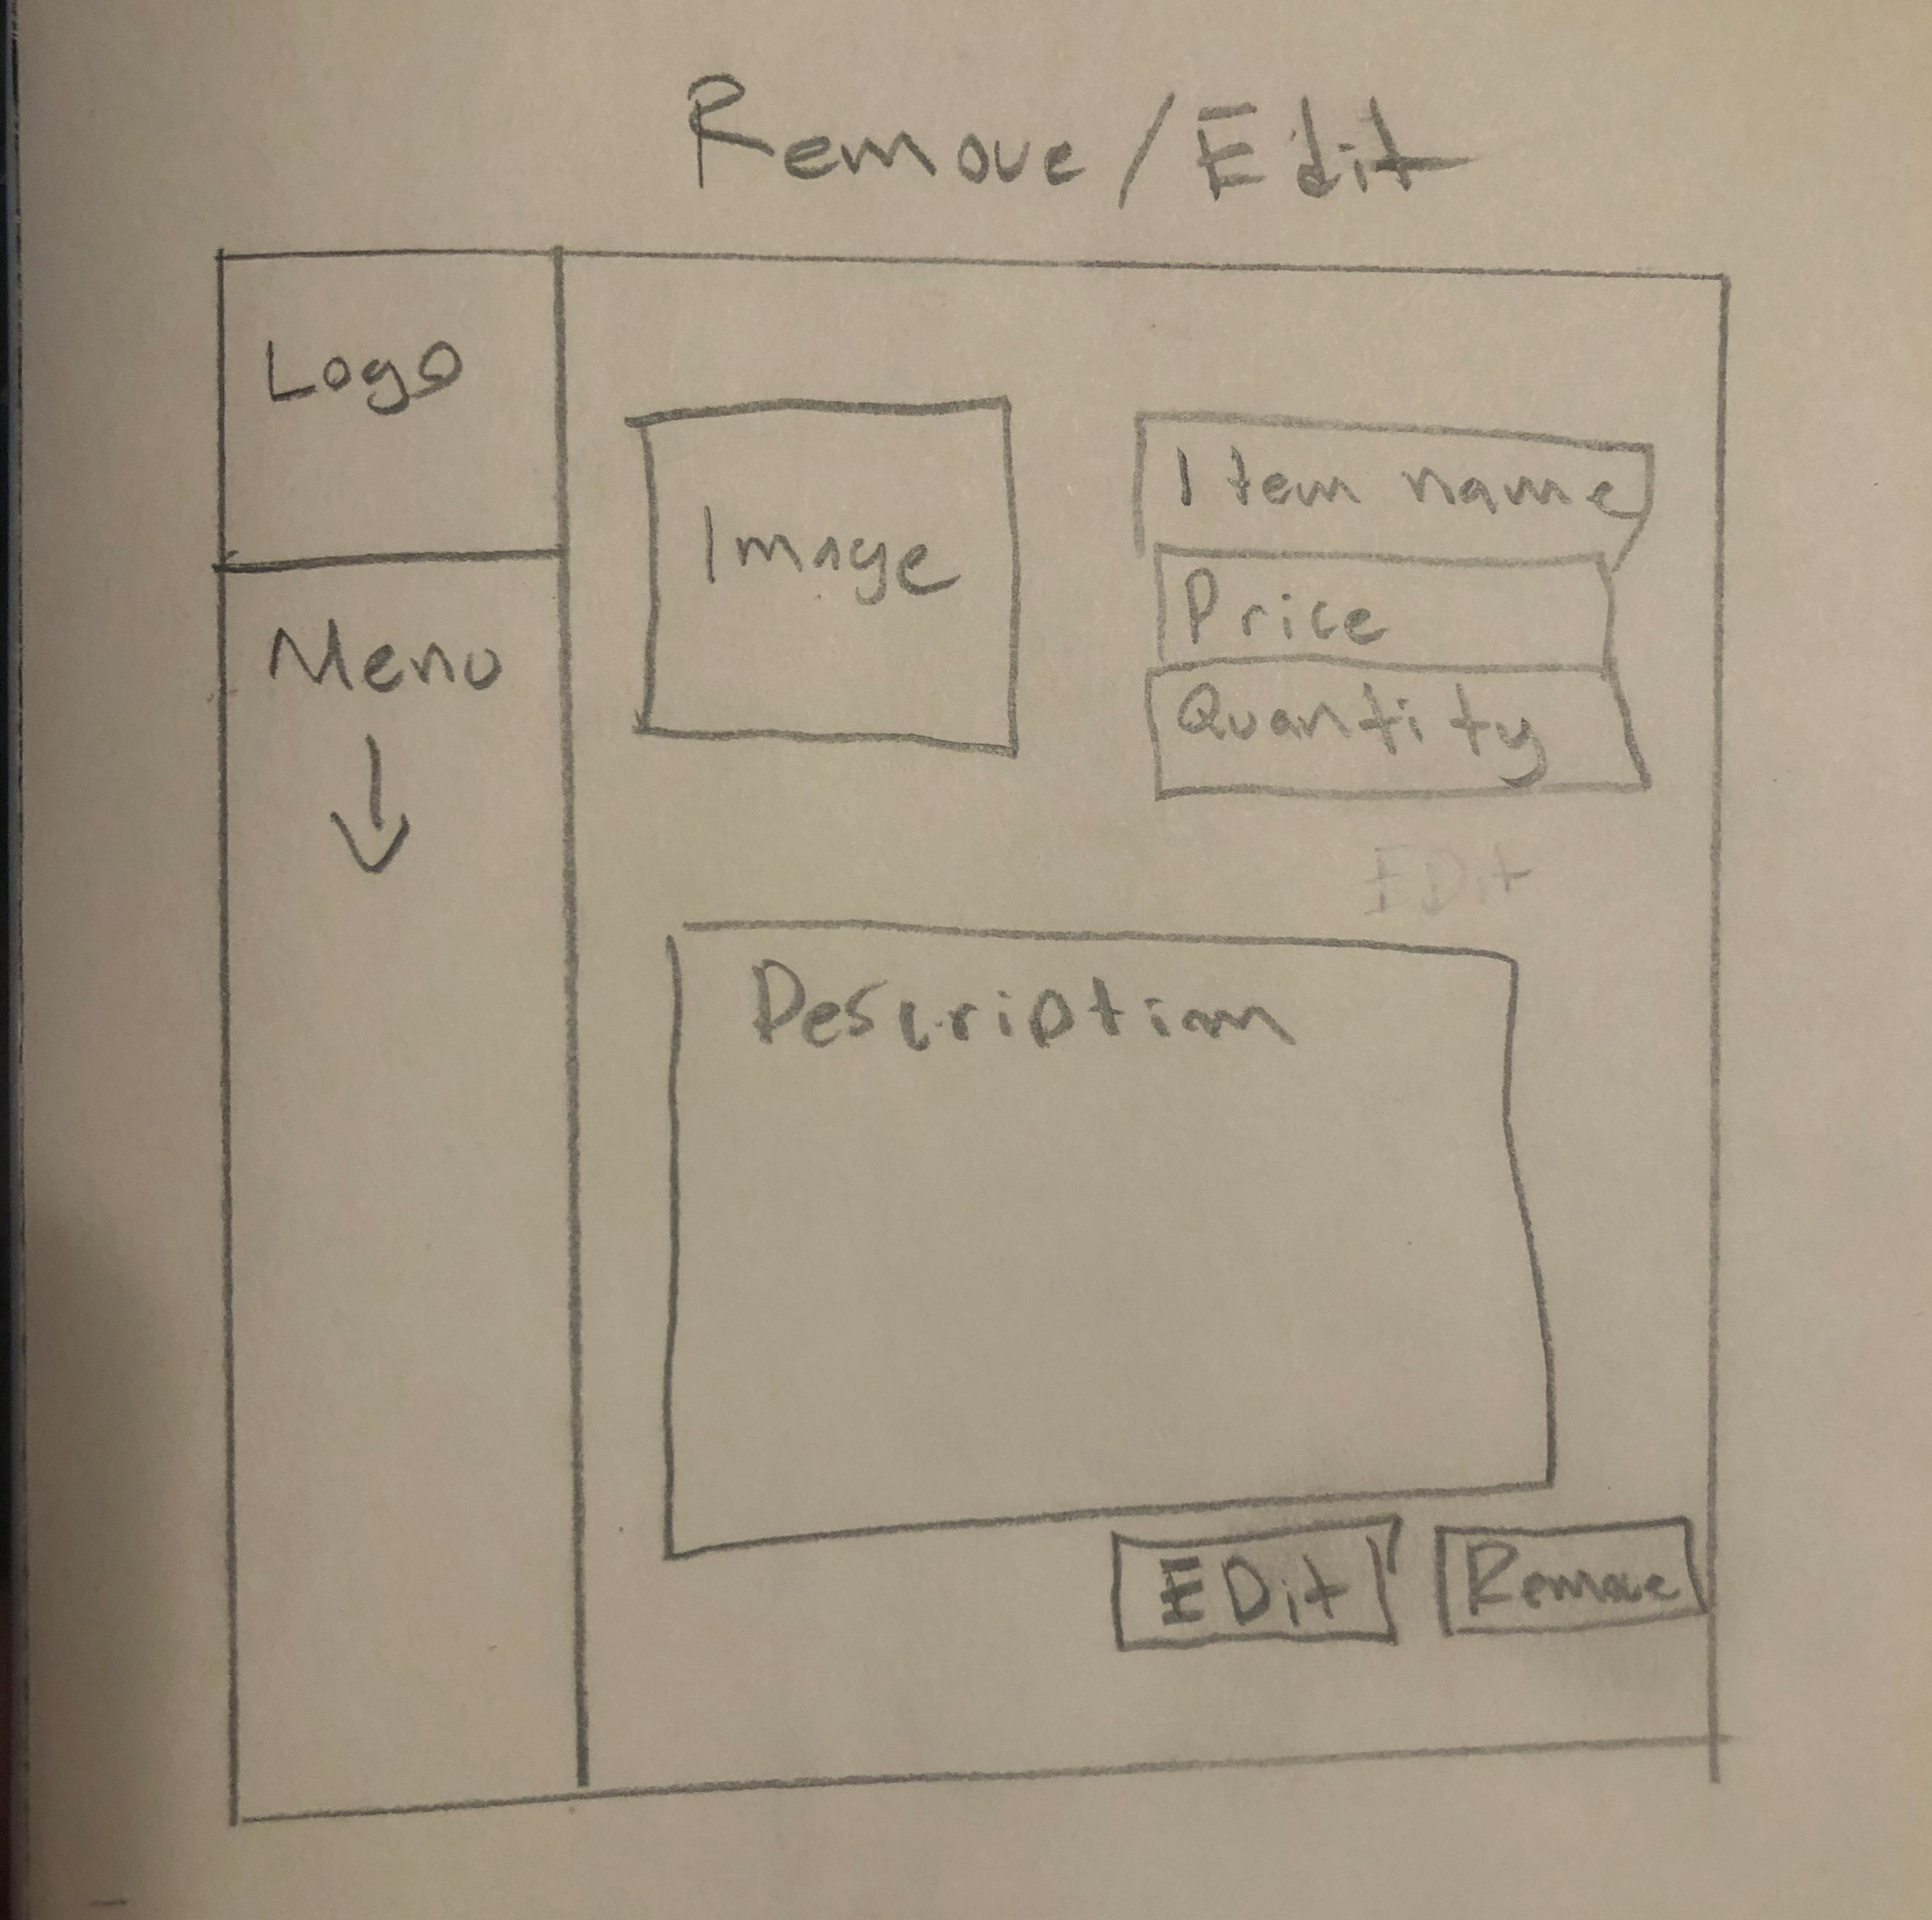 Remove/Edit
Logo
Menu
Image
Item name
Price
Quantity
EDit
Description
EDit
Remove